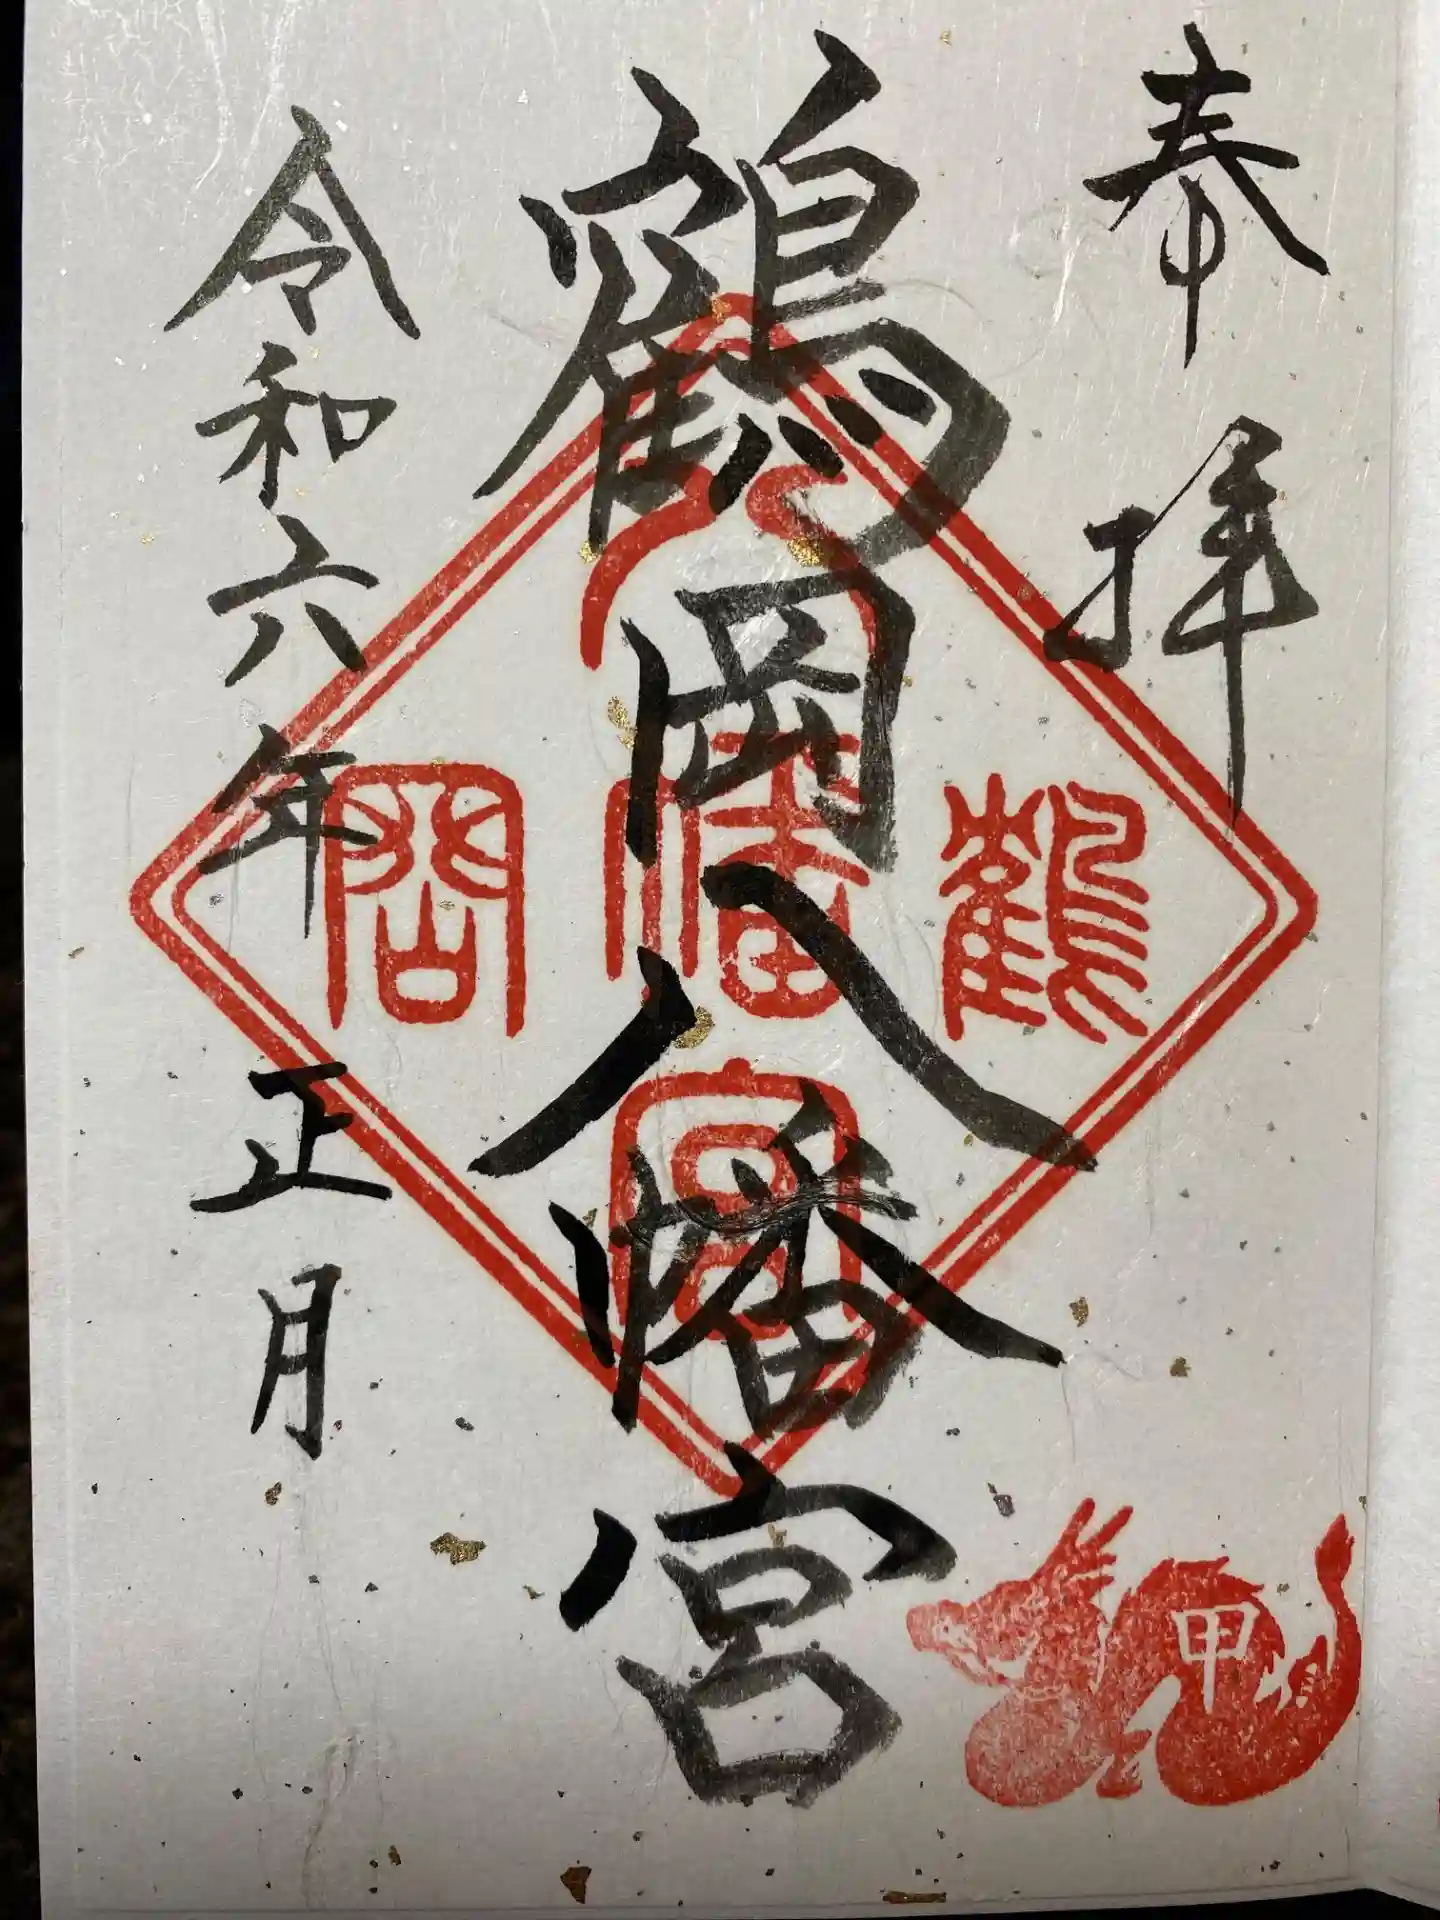 奉拝
鶴岡八幡宮
令和六年正月
八
鶴 幡 岡
宮
甲